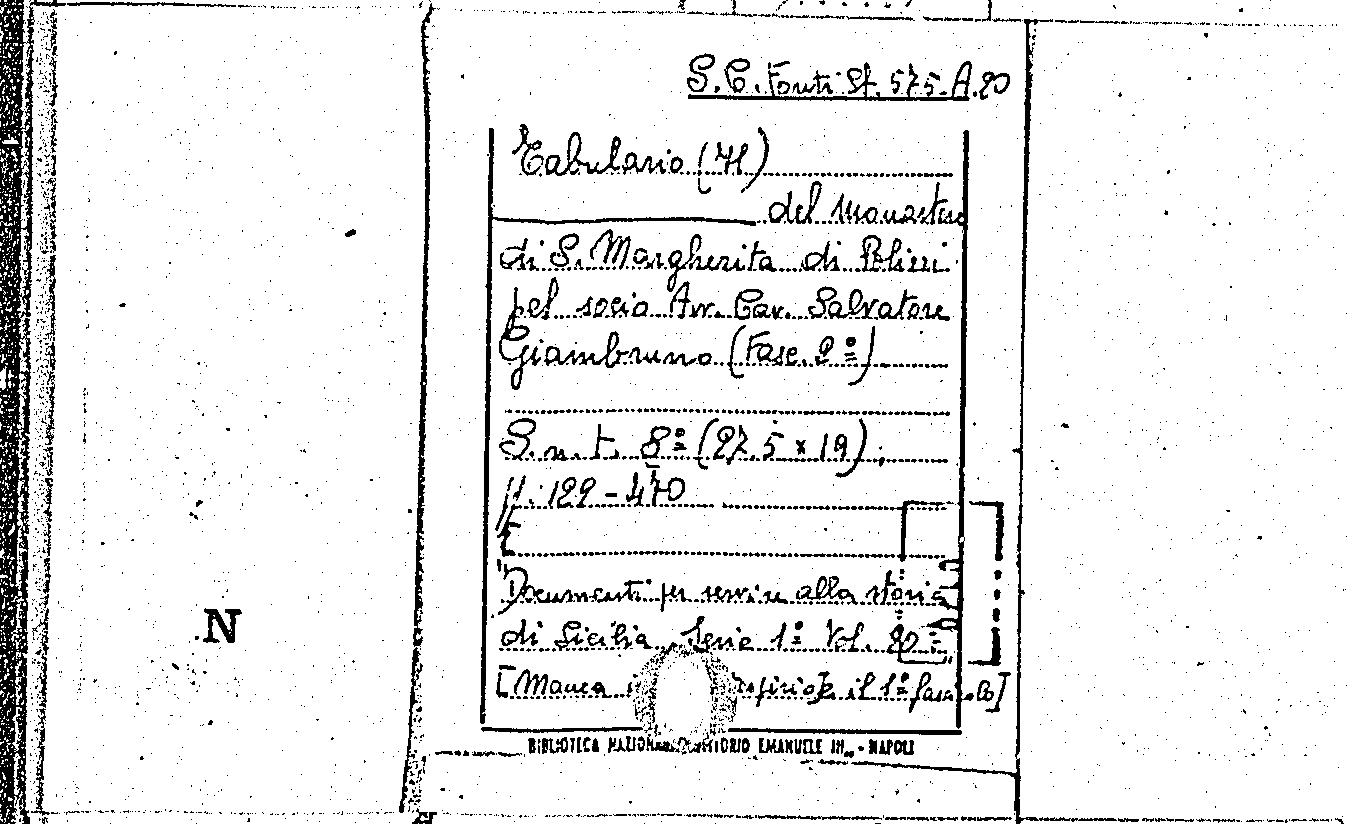 S. C. Fonti Sf. 575-A.20
Tabulario (71)
del monastero
di S. Margherita di Polizzi
pel socio Avv. Cav. Salvatore
Giambruno (Fasc. 2º)
S. n. t. 8º (27.5 x 19);
pp. 129-470
"Documenti per servire alla storia
di Sicilia. Serie 1ª Vol. 20
[Manca il 1º fascicolo]
BIBLIOTECA NAZIONALE VITTORIO EMANUELE III - NAPOLI
N